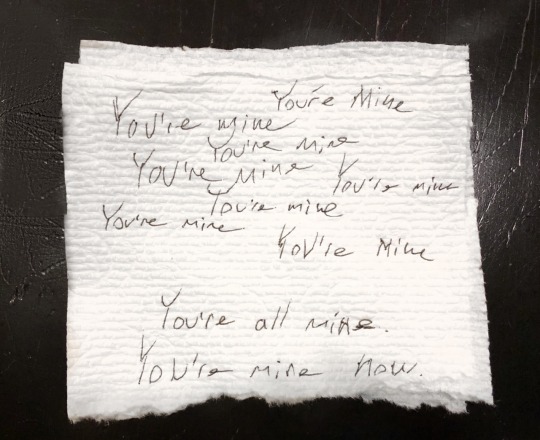 You're Mine
You're mine
You're Mine
You're Mine
You're mine
You're mine
You're mine
You're Mine
You're all mine.
You're mine now.